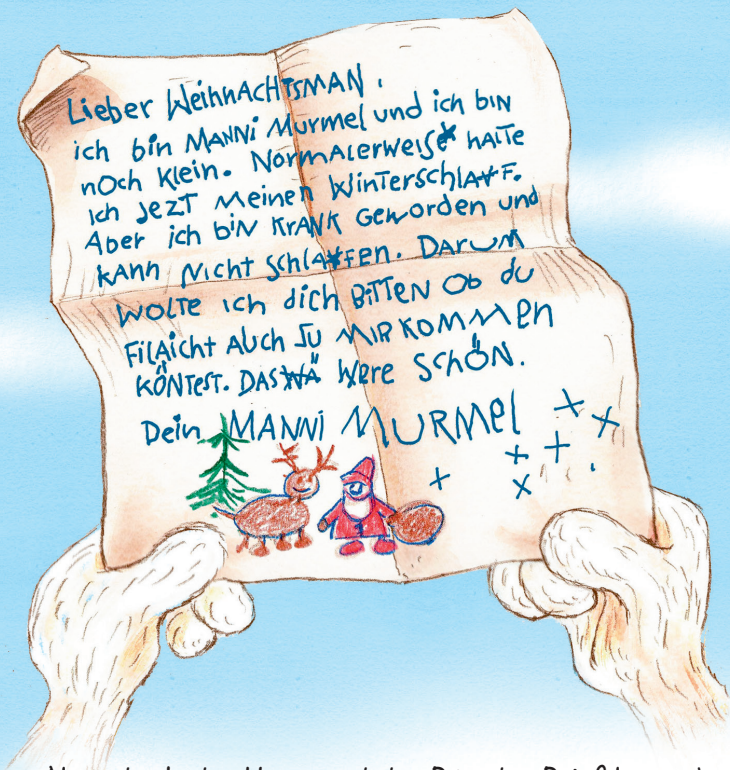 Lieber WeihnACHTSMAN.
ich bin MANNi Murmel und ich biN
nOch Klein. NorMAlerweise hAlTe
Ich JEZT Meinen WinterschlAF.
Aber ich biN KrANK Geworden und
kAnn Nicht SchlAFen. DAruM
WOLTE ich dich BiTTEN Ob du
FilAicht AUch zu MIR KOMMEn
KÖNTEST. DAS WÄ WERE SchÖN.
Dein MANNi MURMEl